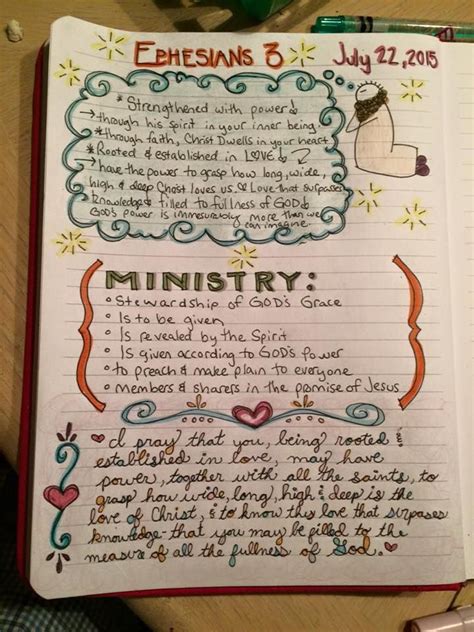 EPHESIANS 3 July 22, 2015
* Strengthened with power &
through his spirit in your inner being.
* through faith, Christ Dwells in your heart
* Rooted & established in LOVE &
have the power to grasp how long, wide,
high & deep Christ loves us & Love that surpasses
knowledge & filled to fullness of GOD &
GOD's power is immesurably more than we
can imagine
MINISTRY:
• Stewardship of GOD's Grace
• Is to be given
• Is revealed by the Spirit
• Is given according to GOD's Power
• to preach & make plain to everyone
• Members & sharers in the promise of Jesus
I pray that you, being rooted &
established in love, may have
power, together with all the saints, to
grasp how wide, long, high & deep is the
love of Christ, & to know this love that surpases
knowledge - that you may be filled to the
measure of all the fullness of God.